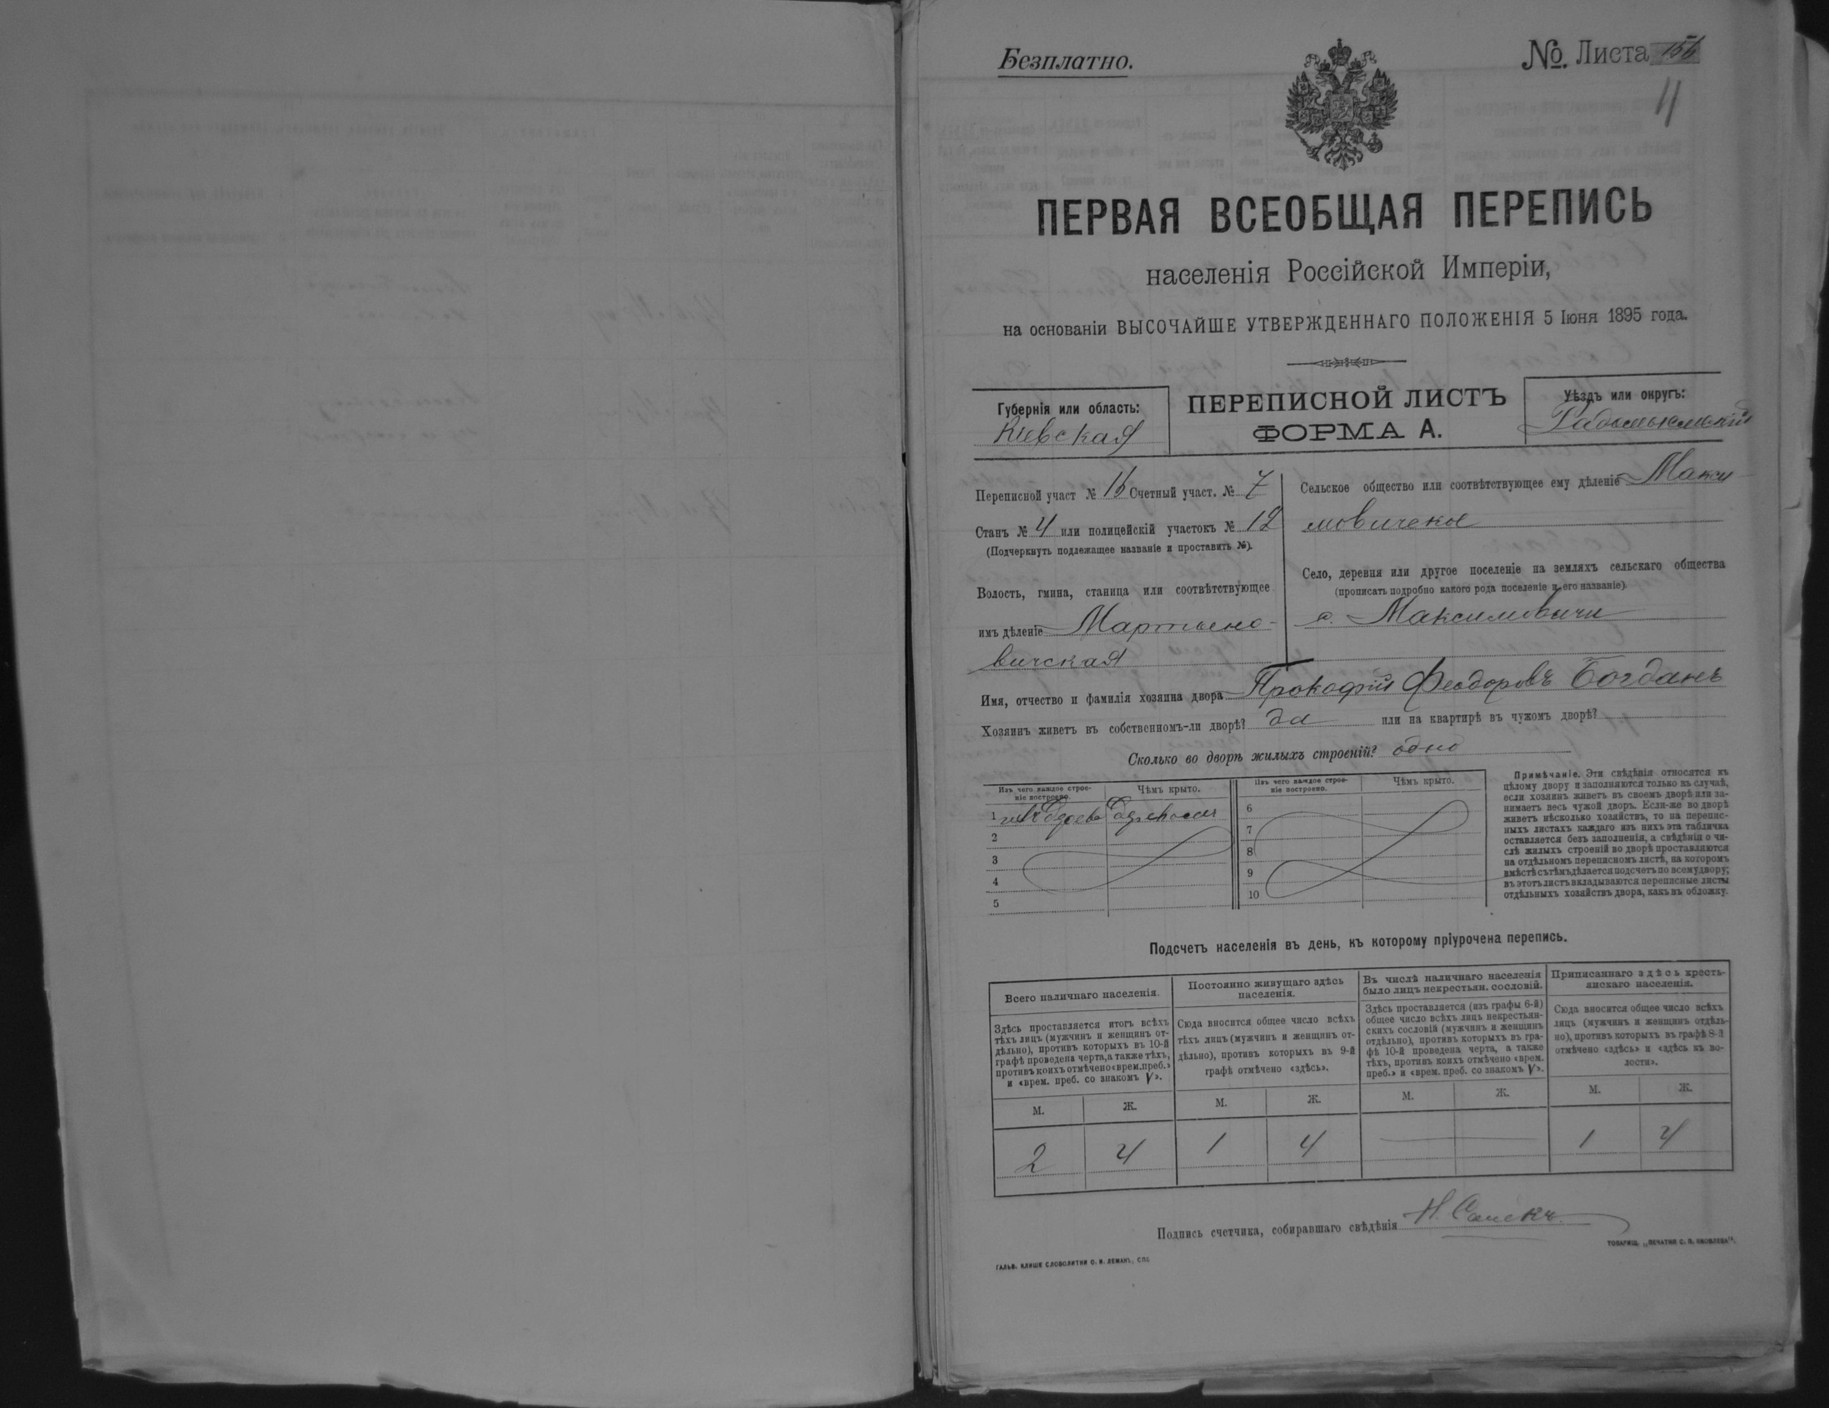 Безплатно.
№. Листа 156
11
ПЕРВАЯ ВСЕОБЩАЯ ПЕРЕПИСЬ
населенія Россійской Имперіи,
на основаніи ВЫСОЧАЙШЕ УТВЕРЖДЕННАГО ПОЛОЖЕНІЯ 5 Іюня 1895 года.
Губернія или область:
Кіевская
ПЕРЕПИСНОЙ ЛИСТЪ
ФОРМА А.
Уѣздъ или округъ:
Радомысльскій
Переписной участ № Счетный участ. № 7
Станъ № 4 или полицейскій участокъ № 12
(Подчеркнуть подлежащее названіе и проставить №).
Волость, гмина, станица или соотвѣтствующее
имъ дѣленіе Мартыно-
вичская
Сельское общество или соотвѣтствующее ему дѣленіе Макси-
мовичское
Село, деревня или другое поселеніе на земляхъ сельскаго общества
(прописать подробно какого рода поселеніе и его названіе)
с. Максимовичи
Имя, отчество и фамилія хозяина двора Прокофій Феодоровъ Богданъ
Хозяинъ живетъ въ собственномъ-ли дворѣ? да или на квартирѣ въ чужомъ дворѣ?
Сколько во дворѣ жилыхъ строеній? одно
Изъ чего каждое строе-
ніе построено.
Чѣмъ крыто.
1
2
3
4
5
Изъ чего каждое строе-
ніе построено.
Чѣмъ крыто.
6
7
8
9
10
Примѣчаніе. Эти свѣдѣнія относятся къ
цѣлому двору и заполняются только въ случаѣ,
если хозяинъ живетъ въ своемъ дворѣ или за-
нимаетъ весь чужой дворъ. Если-же во дворѣ
живетъ нѣсколько хозяйствъ, то на перепис-
ныхъ листахъ каждаго изъ нихъ эта табличка
оставляется безъ заполненія, а свѣдѣнія о чи-
слѣ жилыхъ строеній во дворѣ проставляются
на отдѣльномъ переписномъ листѣ, на которомъ
вмѣстѣ съ тѣмъ дѣлается подсчетъ по всему двору;
въ этотъ листъ вкладываются переписные листы
отдѣльныхъ хозяйствъ двора, какъ въ обложку.
Подсчетъ населенія въ день, къ которому пріурочена перепись.
Всего наличнаго населенія.
Здѣсь проставляется итогъ всѣхъ
тѣхъ лицъ (мужчинъ и женщинъ от-
дѣльно), противъ которыхъ въ 10-й
графѣ проведена черта, а также тѣхъ,
противъ коихъ отмѣчено «врем. преб.»
и «врем. преб. со знакомъ V».
М. Ж.
2 4
Постоянно живущаго здѣсь
населенія.
Сюда вносится общее число всѣхъ
тѣхъ лицъ (мужчинъ и женщинъ от-
дѣльно), противъ которыхъ въ 9-й
графѣ отмѣчено «здѣсь».
М. Ж.
1 4
Въ числѣ наличнаго населенія
было лицъ некрестьян. сословій.
Здѣсь проставляется (изъ графы 6-й)
общее число всѣхъ лицъ некрестьян-
скихъ сословій (мужчинъ и женщинъ
отдѣльно), противъ которыхъ въ гра-
фѣ 10-й проведена черта, а также
тѣхъ, противъ коихъ отмѣчено «врем.
преб.» и «врем. преб. со знакомъ V».
М. Ж.
Приписаннаго здѣсь кресть-
янскаго населенія.
Сюда вносится общее число всѣхъ
лицъ (мужчинъ и женщинъ отдѣль-
но), противъ которыхъ въ графѣ 8-й
отмѣчено «здѣсь» и «здѣсь въ во-
лости».
М. Ж.
1 4
Подпись счетчика, собиравшаго свѣдѣнія Н.
ГАЛЬВ. КЛИШЕ СЛОВОЛИТНИ О. И. ЛЕМАНЪ, СПБ
ТОВАРИЩ. „ПЕЧАТНЯ С. П. ЯКОВЛЕВА".